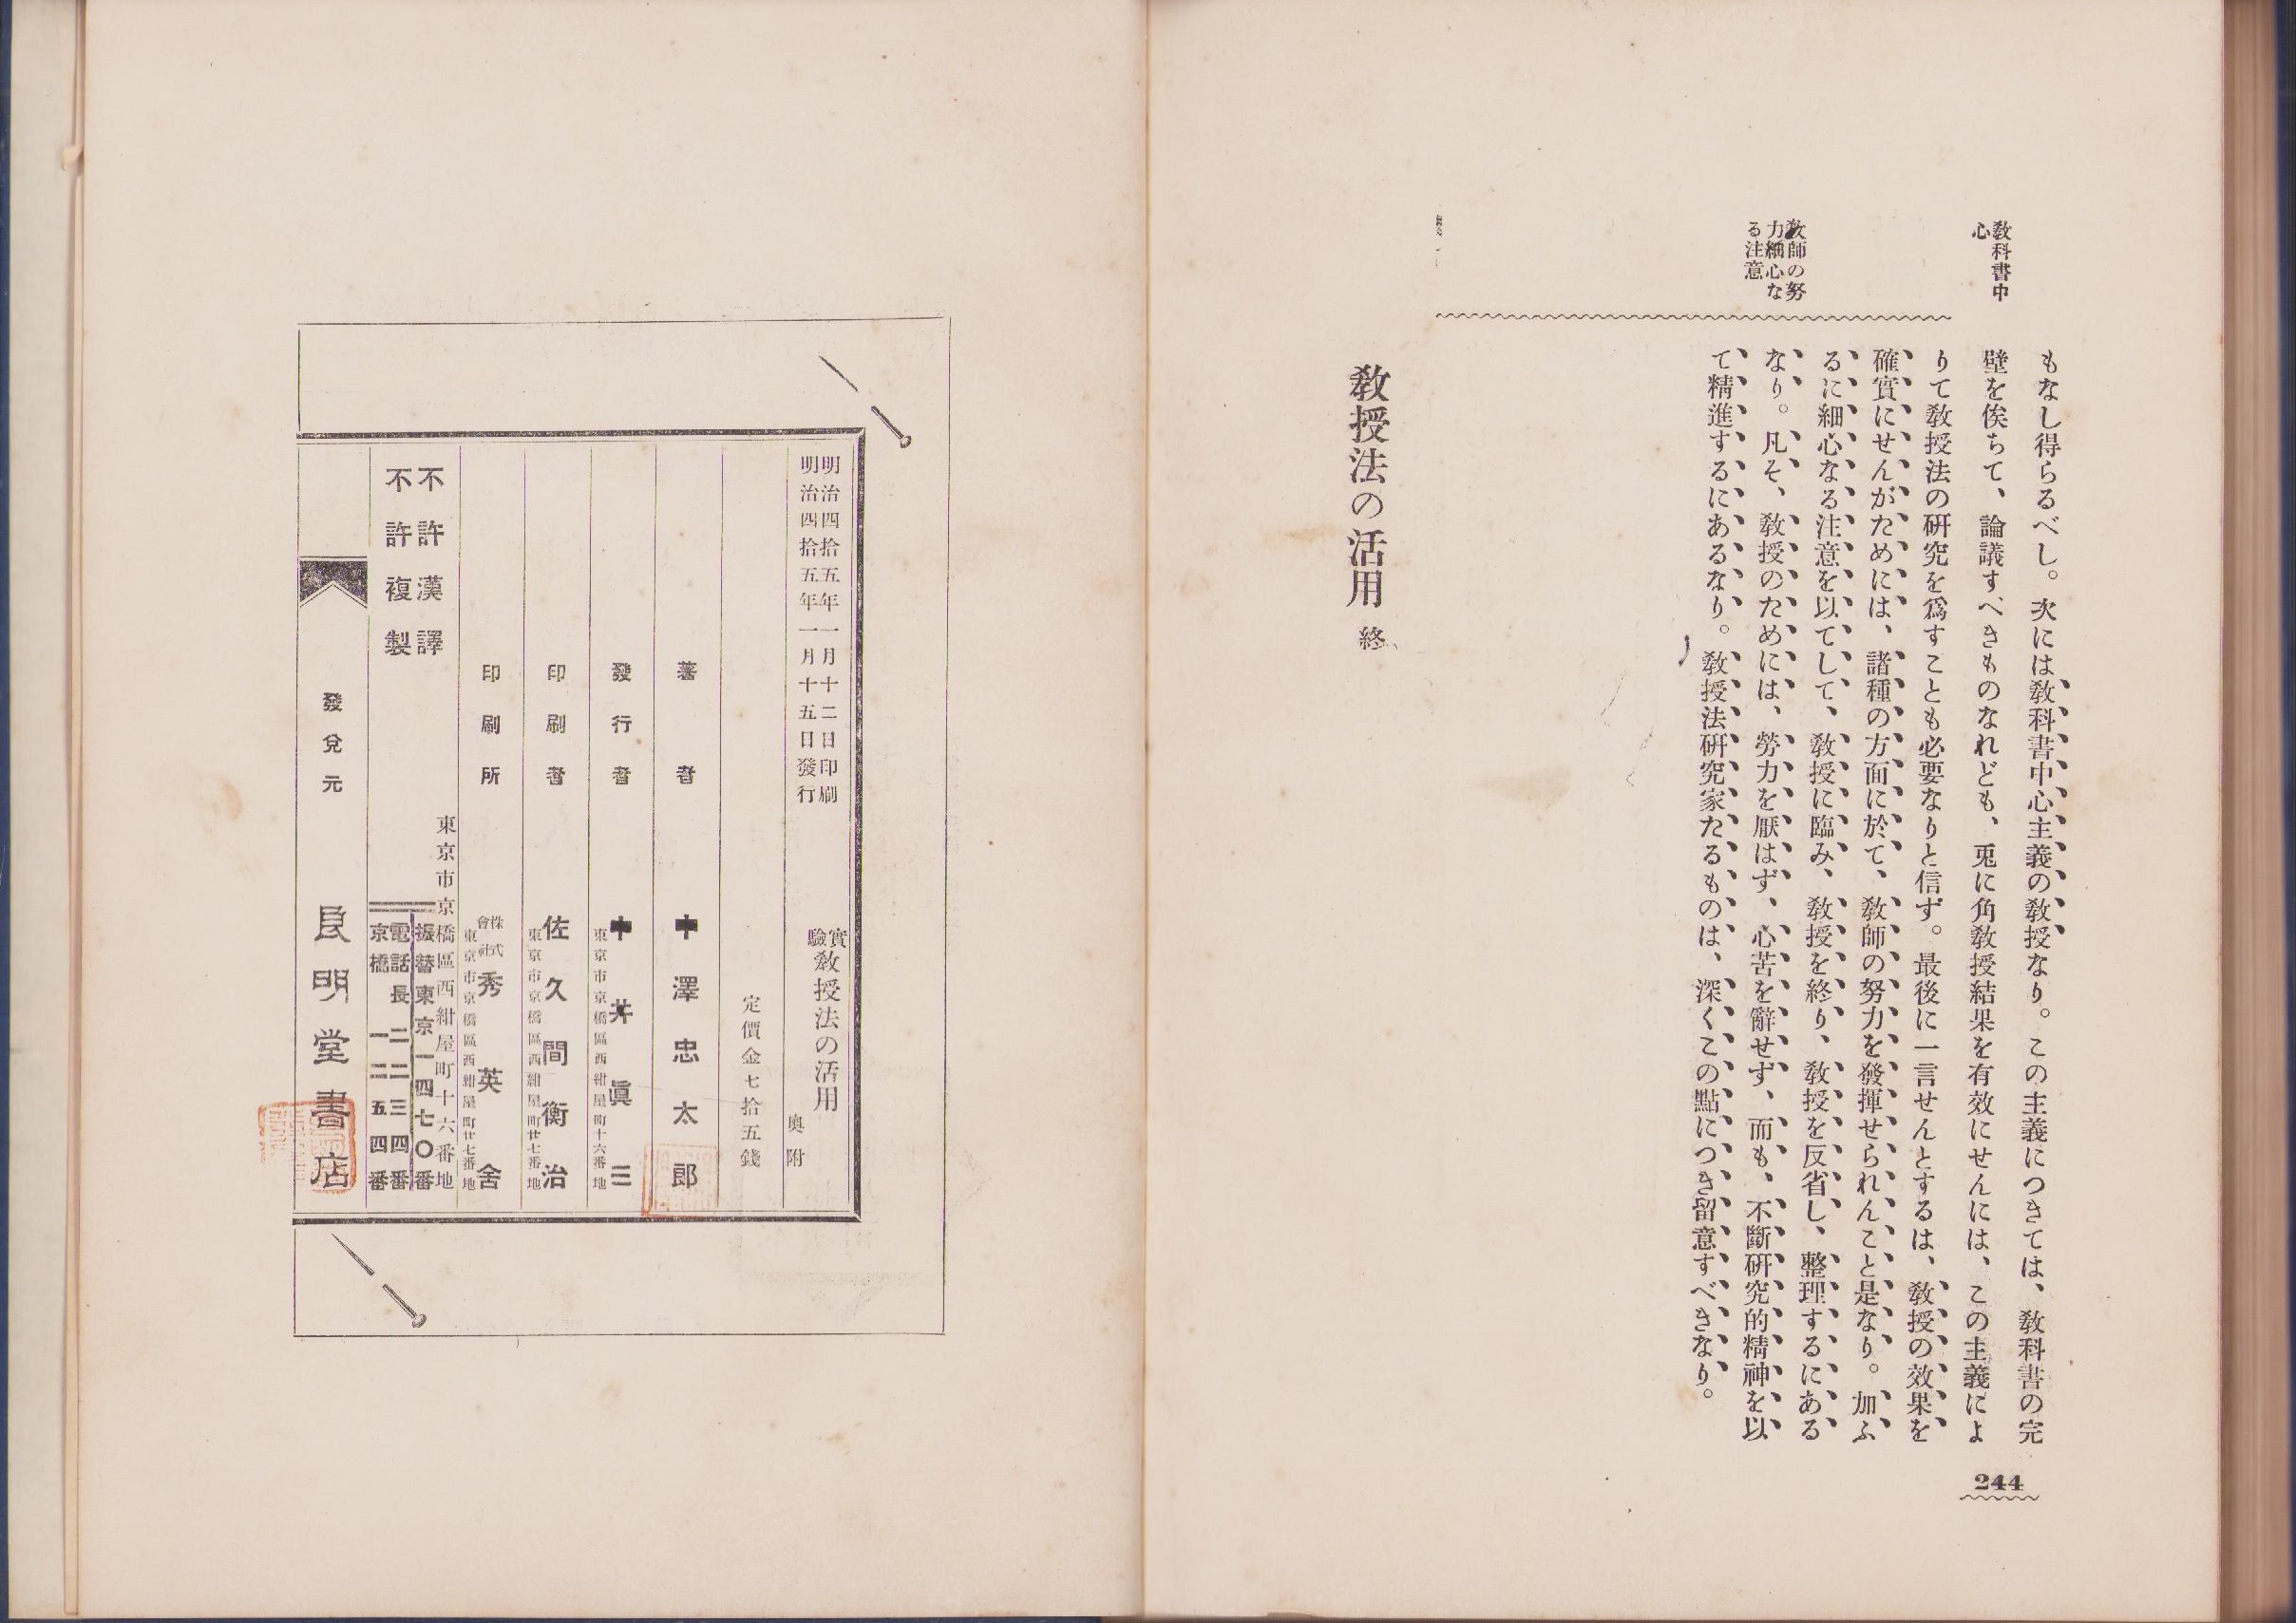 教科書中
心
教師の努
力細心な
る注意
もなし得らるべし。次には教科書中心主義の教授なり。この主義につきては、教科書の完
璧を俟ちて、論議すべきものなれども、兎に角教授結果を有效にせんには、この主義によ
りて教授法の研究を爲すことも必要なりと信ず。最後に一言せんとするは、教授の效果を
確實にせんがためには、諸種の方面に於て、教師の努力を發揮せられんこと是なり。加ふ
るに細心なる注意を以てして、教授に臨み、教授を終り、教授を反省し、整理するにある
なり。凡そ、教授のためには、勞力を厭はず、心苦を辭せず、而も、不斷研究的精神を以
て精進するにあるなり。教授法研究家たるものは、深くこの點につき留意すべきなり。
教授法の活用 終
244
明治四拾五年一月十二日印刷
明治四拾五年一月十五日發行
實驗 教授法の活用
奧附
定價金七拾五錢
著者 中澤忠太郎
發行者 中井眞三
東京市京橋區西紺屋町十六番地
印刷者 佐久間衡治
東京市京橋區西紺屋町廿七番地
印刷所 株式會社 秀英舍
東京市京橋區西紺屋町廿七番地
不許漢譯
不許複製
東京市京橋區西紺屋町十六番地
振替東京一四七〇番
電話長二二三四番
京橋一二五四番
發兌元 良明堂書店